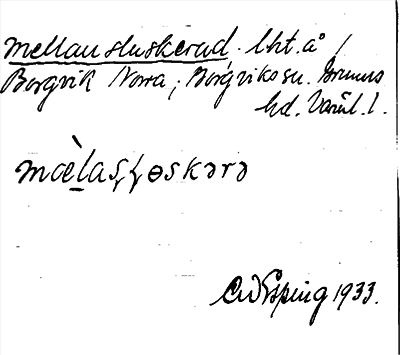 Mellau sluskerud. lht. å /
Borgvik Norra; Borgviks sn. Grums
hd. Värml. l.
mæ̀las̡ɵskərə
C W Esping 1933.